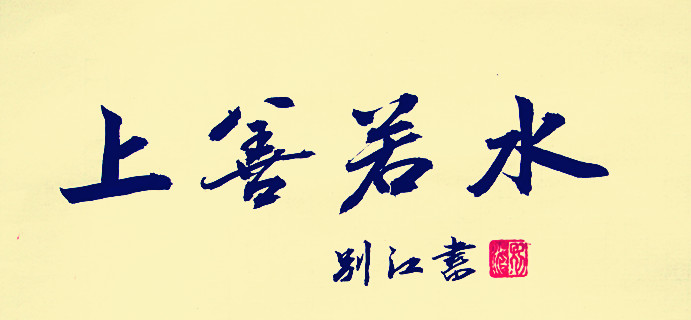 上善若水
别江书